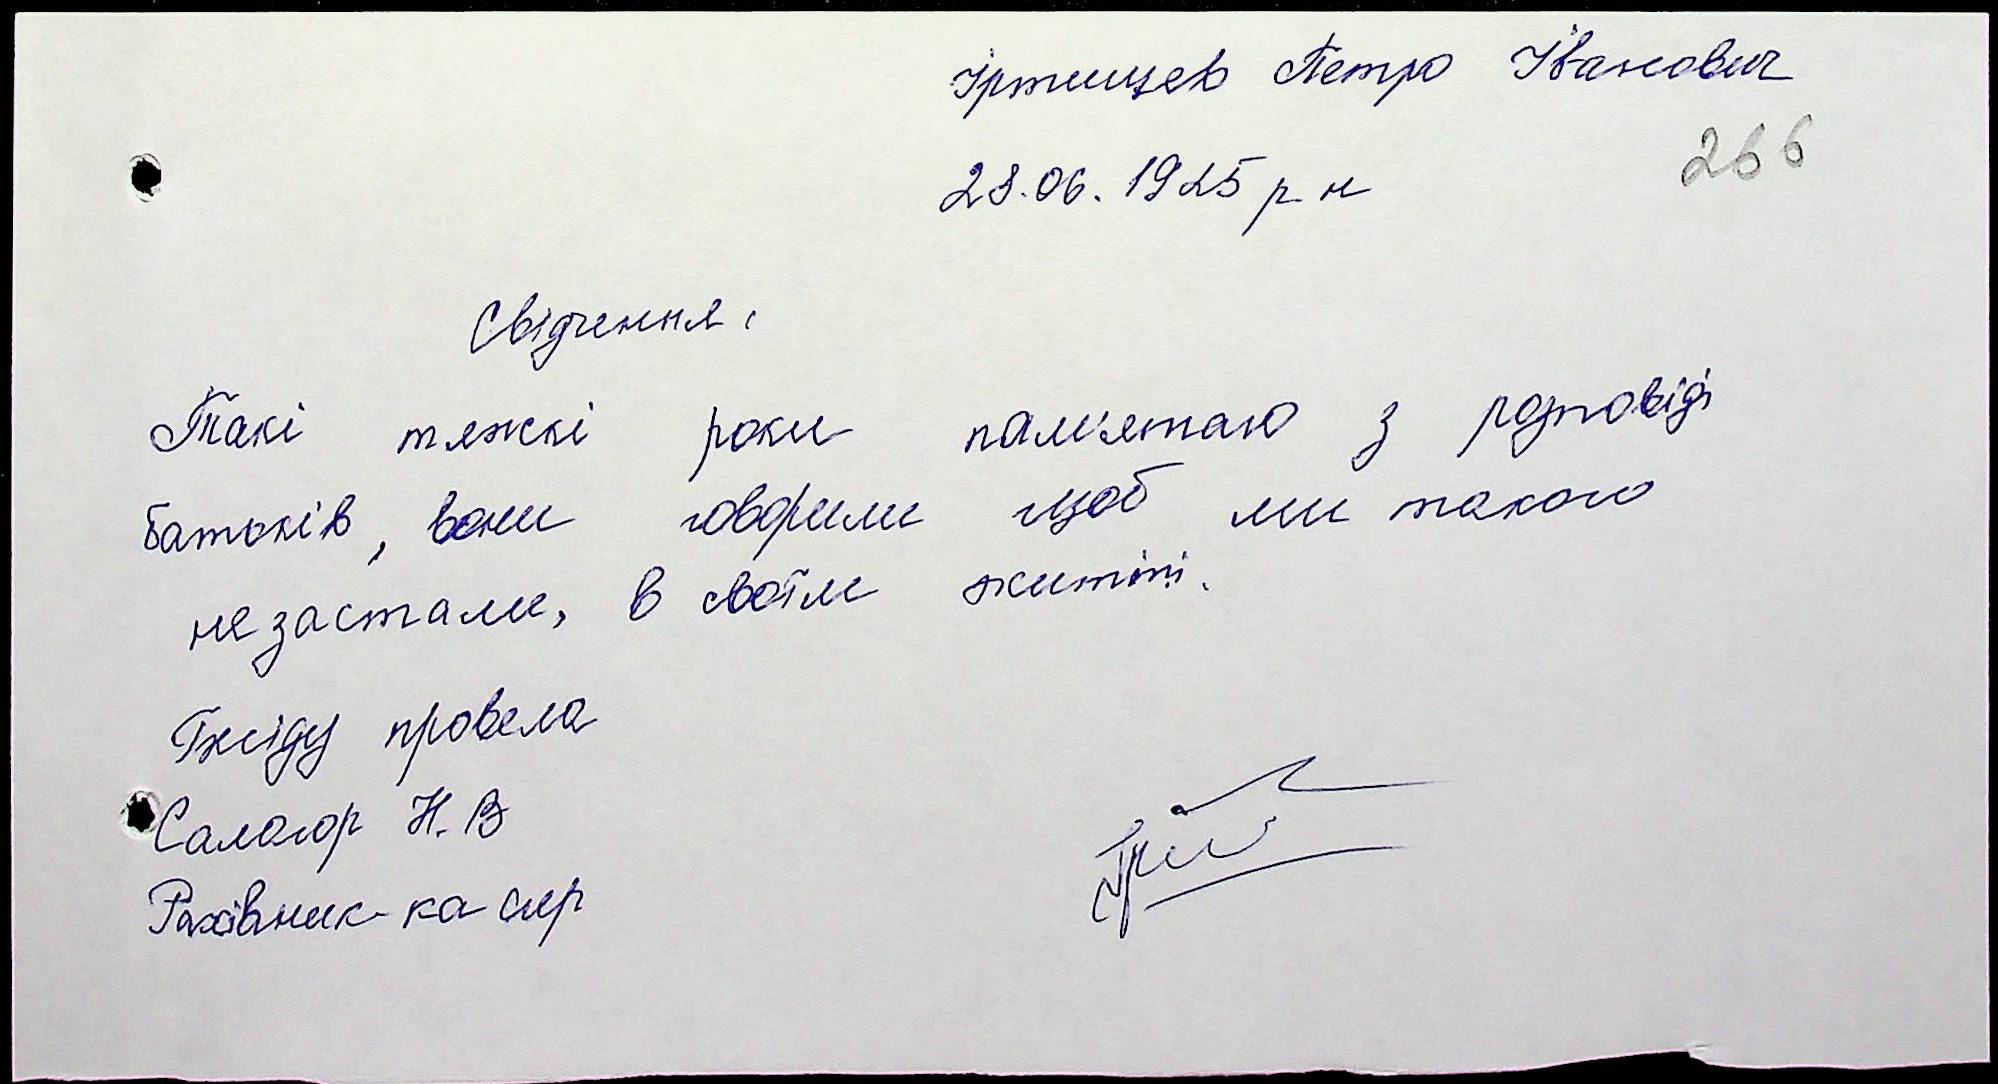 Іртищев Петро Іванович
266
28.06.1925 р н
Свідчення.
Такі тяжкі роки пам'ятаю з розповіді
батьків, вони говорили щоб ми такого
не застали, в своїм житті.
Бесіду провела
Салогор Н. В
Рахівник-касир